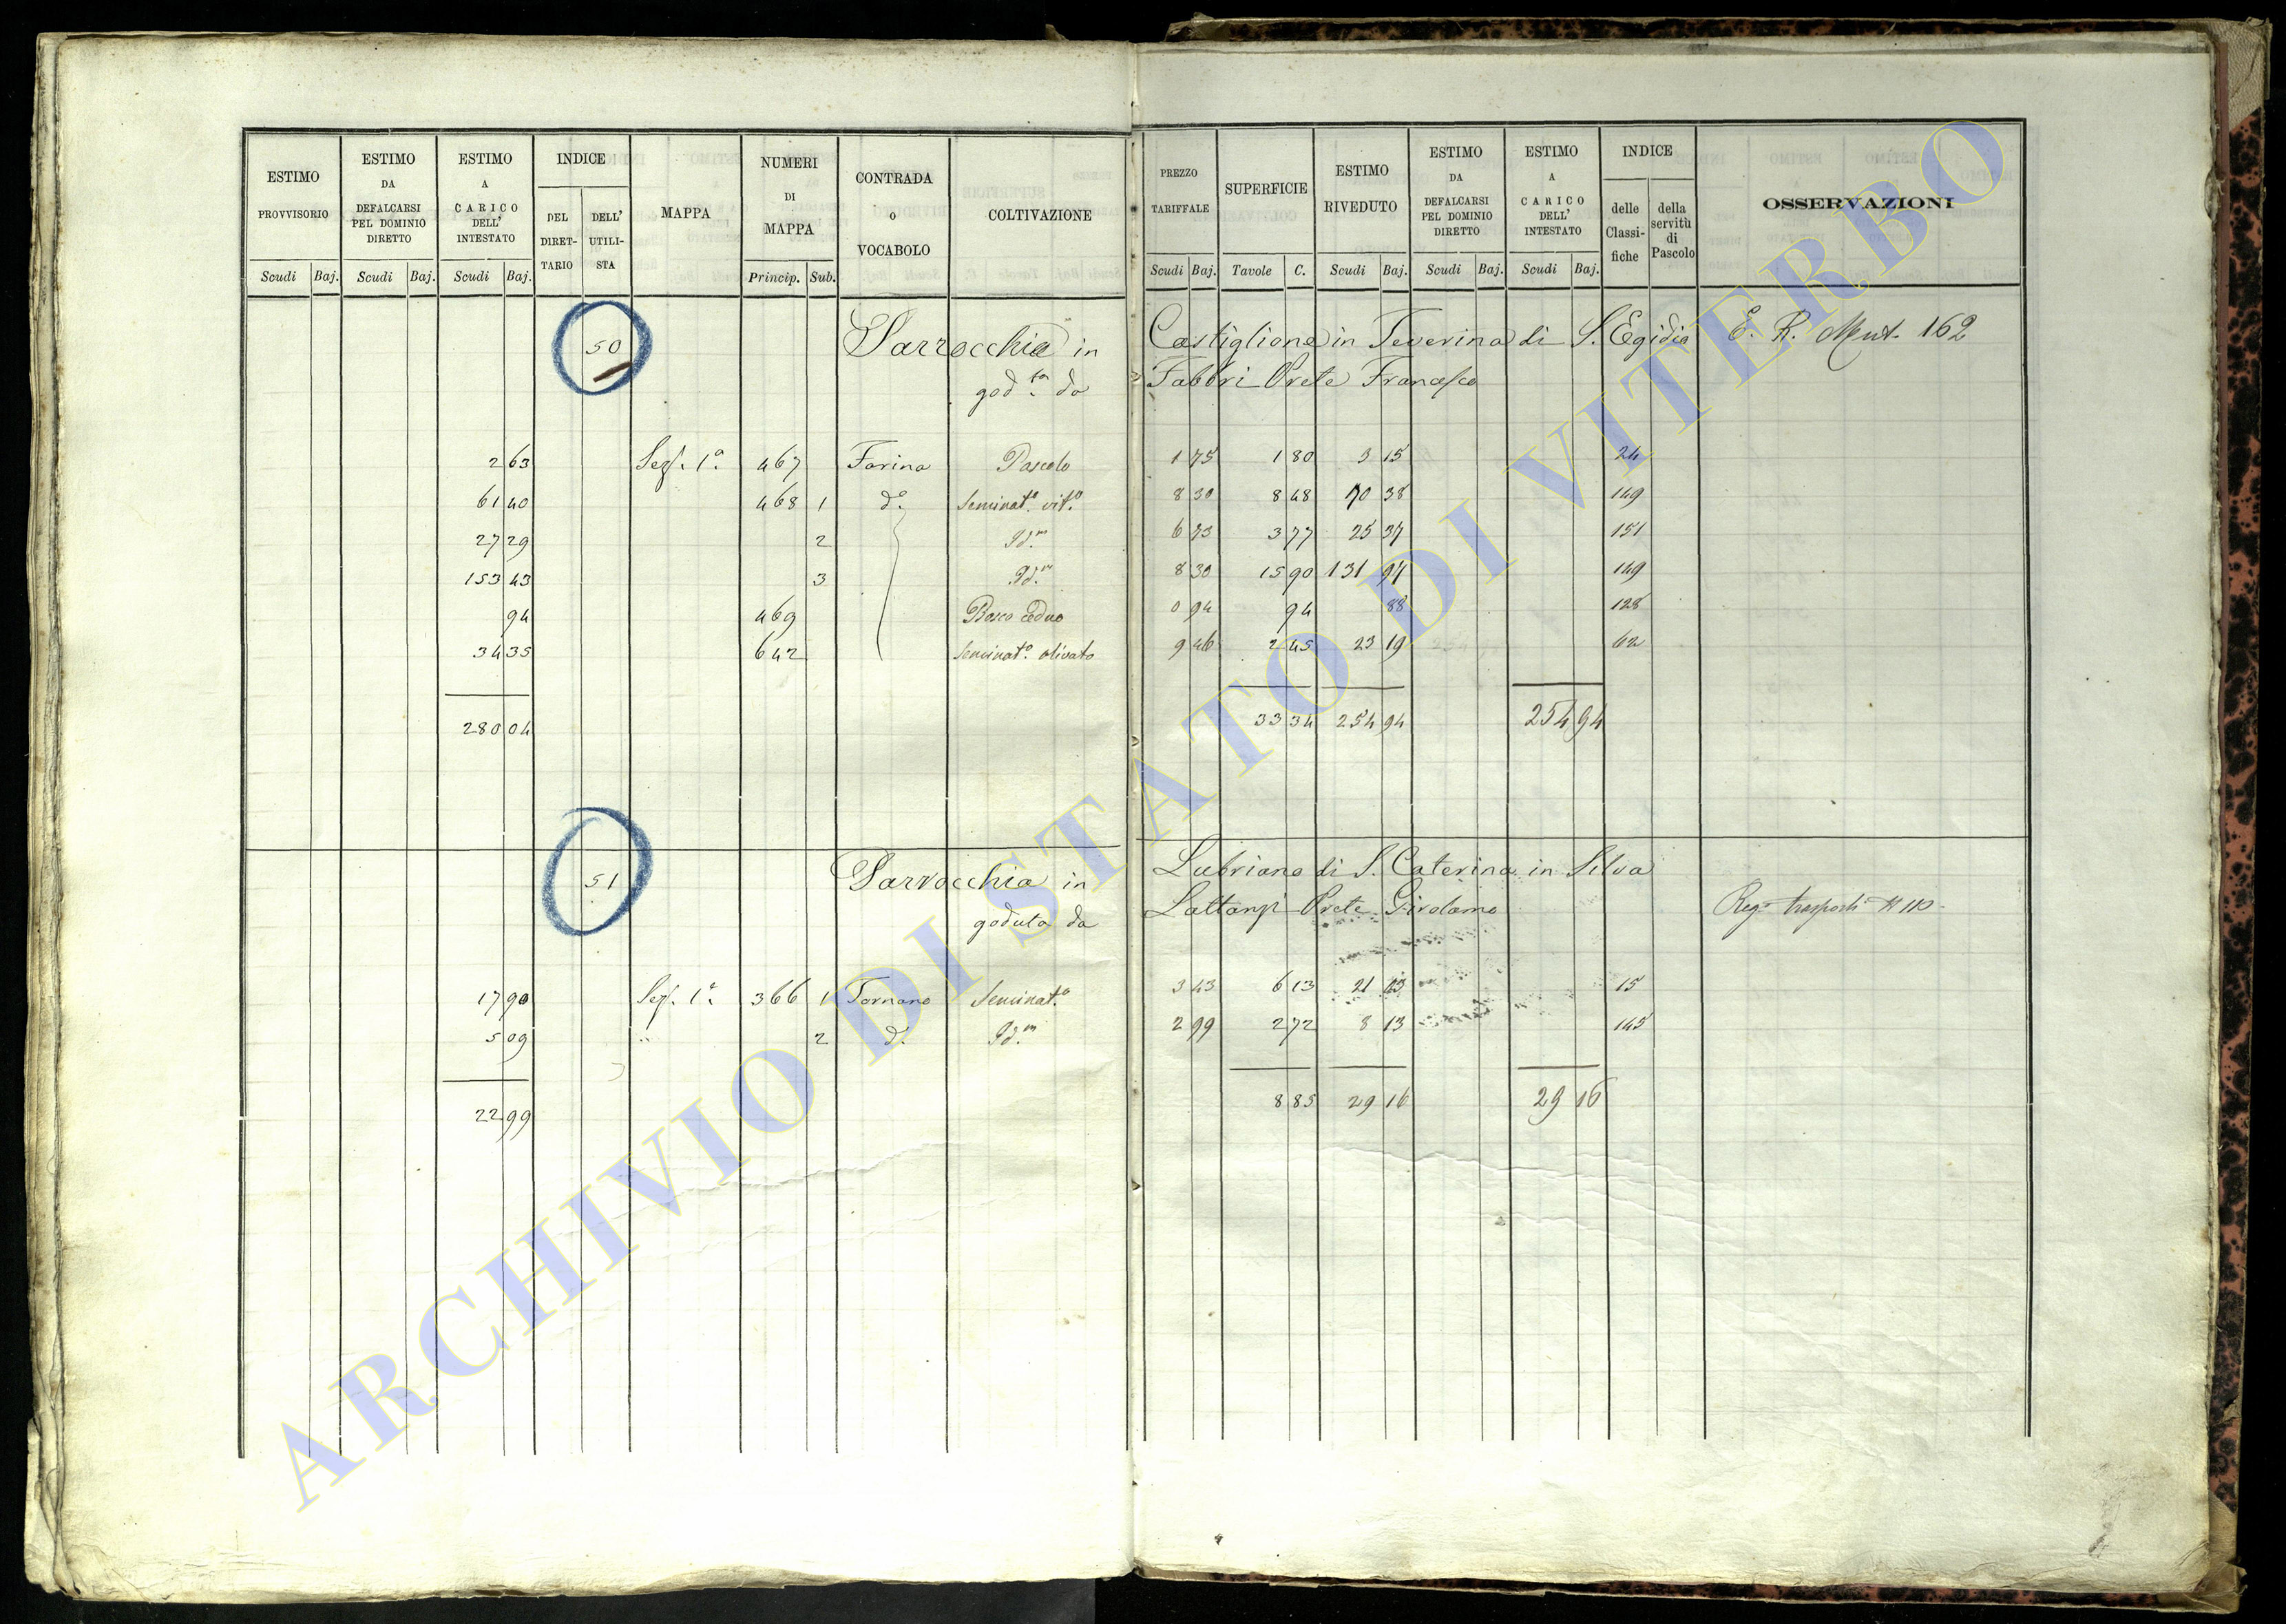 ESTIMO PROVVISORIO | ESTIMO DA DEFALCARSI PEL DOMINIO DIRETTO | ESTIMO A CARICO DELL' INTESTATO | INDICE DEL DIRETTARIO | DELL' UTILISTA | MAPPA | NUMERI DI MAPPA | CONTRADA O VOCABOLO | COLTIVAZIONE | PREZZO TARIFFALE | SUPERFICIE | ESTIMO RIVEDUTO | ESTIMO DA DEFALCARSI PEL DOMINIO DIRETTO | ESTIMO A CARICO DELL' INTESTATO | INDICE delle Classifiche | della servitù di Pascolo | OSSERVAZIONI
Scudi Baj. Scudi Baj. Scudi Baj. Princip. Sub. Scudi Baj. Tavole C. Scudi Baj. Scudi Baj. Scudi Baj.
50 Parrocchia in Castiglione in Teverina di S. Egidio E. R. Mut. 162
god.ta da Fabbri Prete Francesco
2 63 Sez. 1a 467 Farina Pascolo 1 75 1 80 3 15 24
61 40 468 1 d.o Seminat.o vit.o 8 30 8 48 70 38 149
27 29 2 Id.m 6 73 3 77 25 37 151
153 43 3 Id.m 8 30 15 90 131 97 149
94 469 Bosco ceduo 0 94 94 88 128
34 35 642 Seminat.o olivato 9 46 2 45 23 19 62
280 04 33 34 254 94 254 94
51 Parrocchia in Lubriano di S. Caterina in Silva
goduta da Lattanzi Prete Girolamo Reg.o trasporti N 110
17 90 Sez. 1a 366 1 Tornano Seminat.o 3 43 6 13 21 03 15
5 09 " 2 d.o Id.m 2 99 2 72 8 13 145
22 99 8 85 29 16 29 16
ARCHIVIO DI STATO DI VITERBO